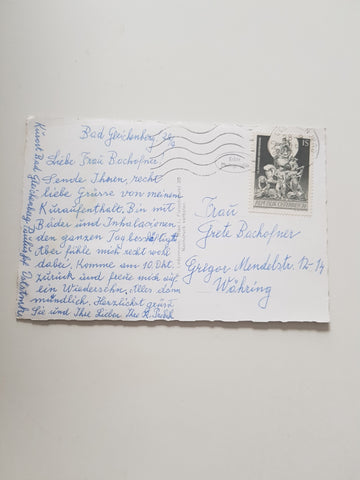 Bad Gleichenberg, 26/9
Liebe Frau Bachofner,
Sende Ihnen, recht
liebe Grüsse von meinem
Kuraufenthalt. Bin mit
Bäder und Inhalationen
den ganzen Tag beschäftigt.
Aber fühle mich recht wohl
dabei. Komme am 10. Okt.
zurück und freue mich auf
ein Wiedersehn. Alles dann
mündlich. Herzlichst grüsst
Sie und Ihre Lieben Ihre
Kurort Bad Gleichenberg
Frau
Grete Bachofner
Gregor Mendelstr. 12-14
Währing
1S
REPUBLIK ÖSTERREICH